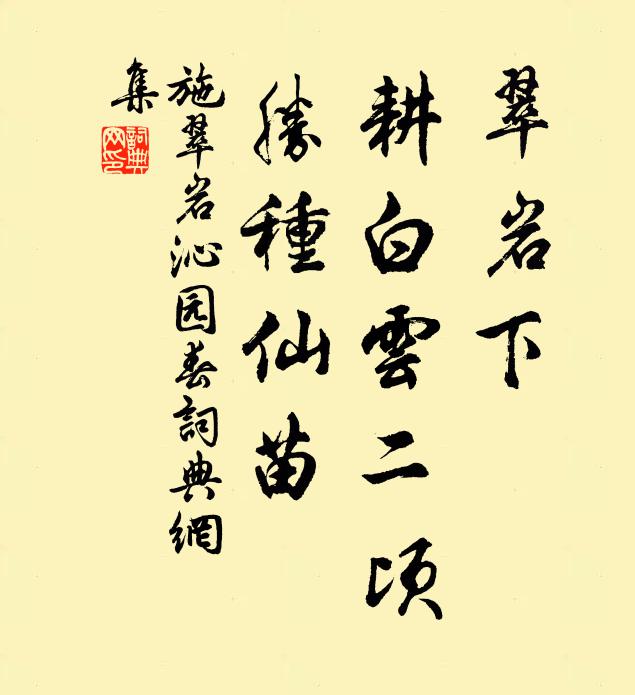 翠岩下
耕白雲二頃
勝種仙苗
施翠岩沁园春詞典網
集
詞典
网印